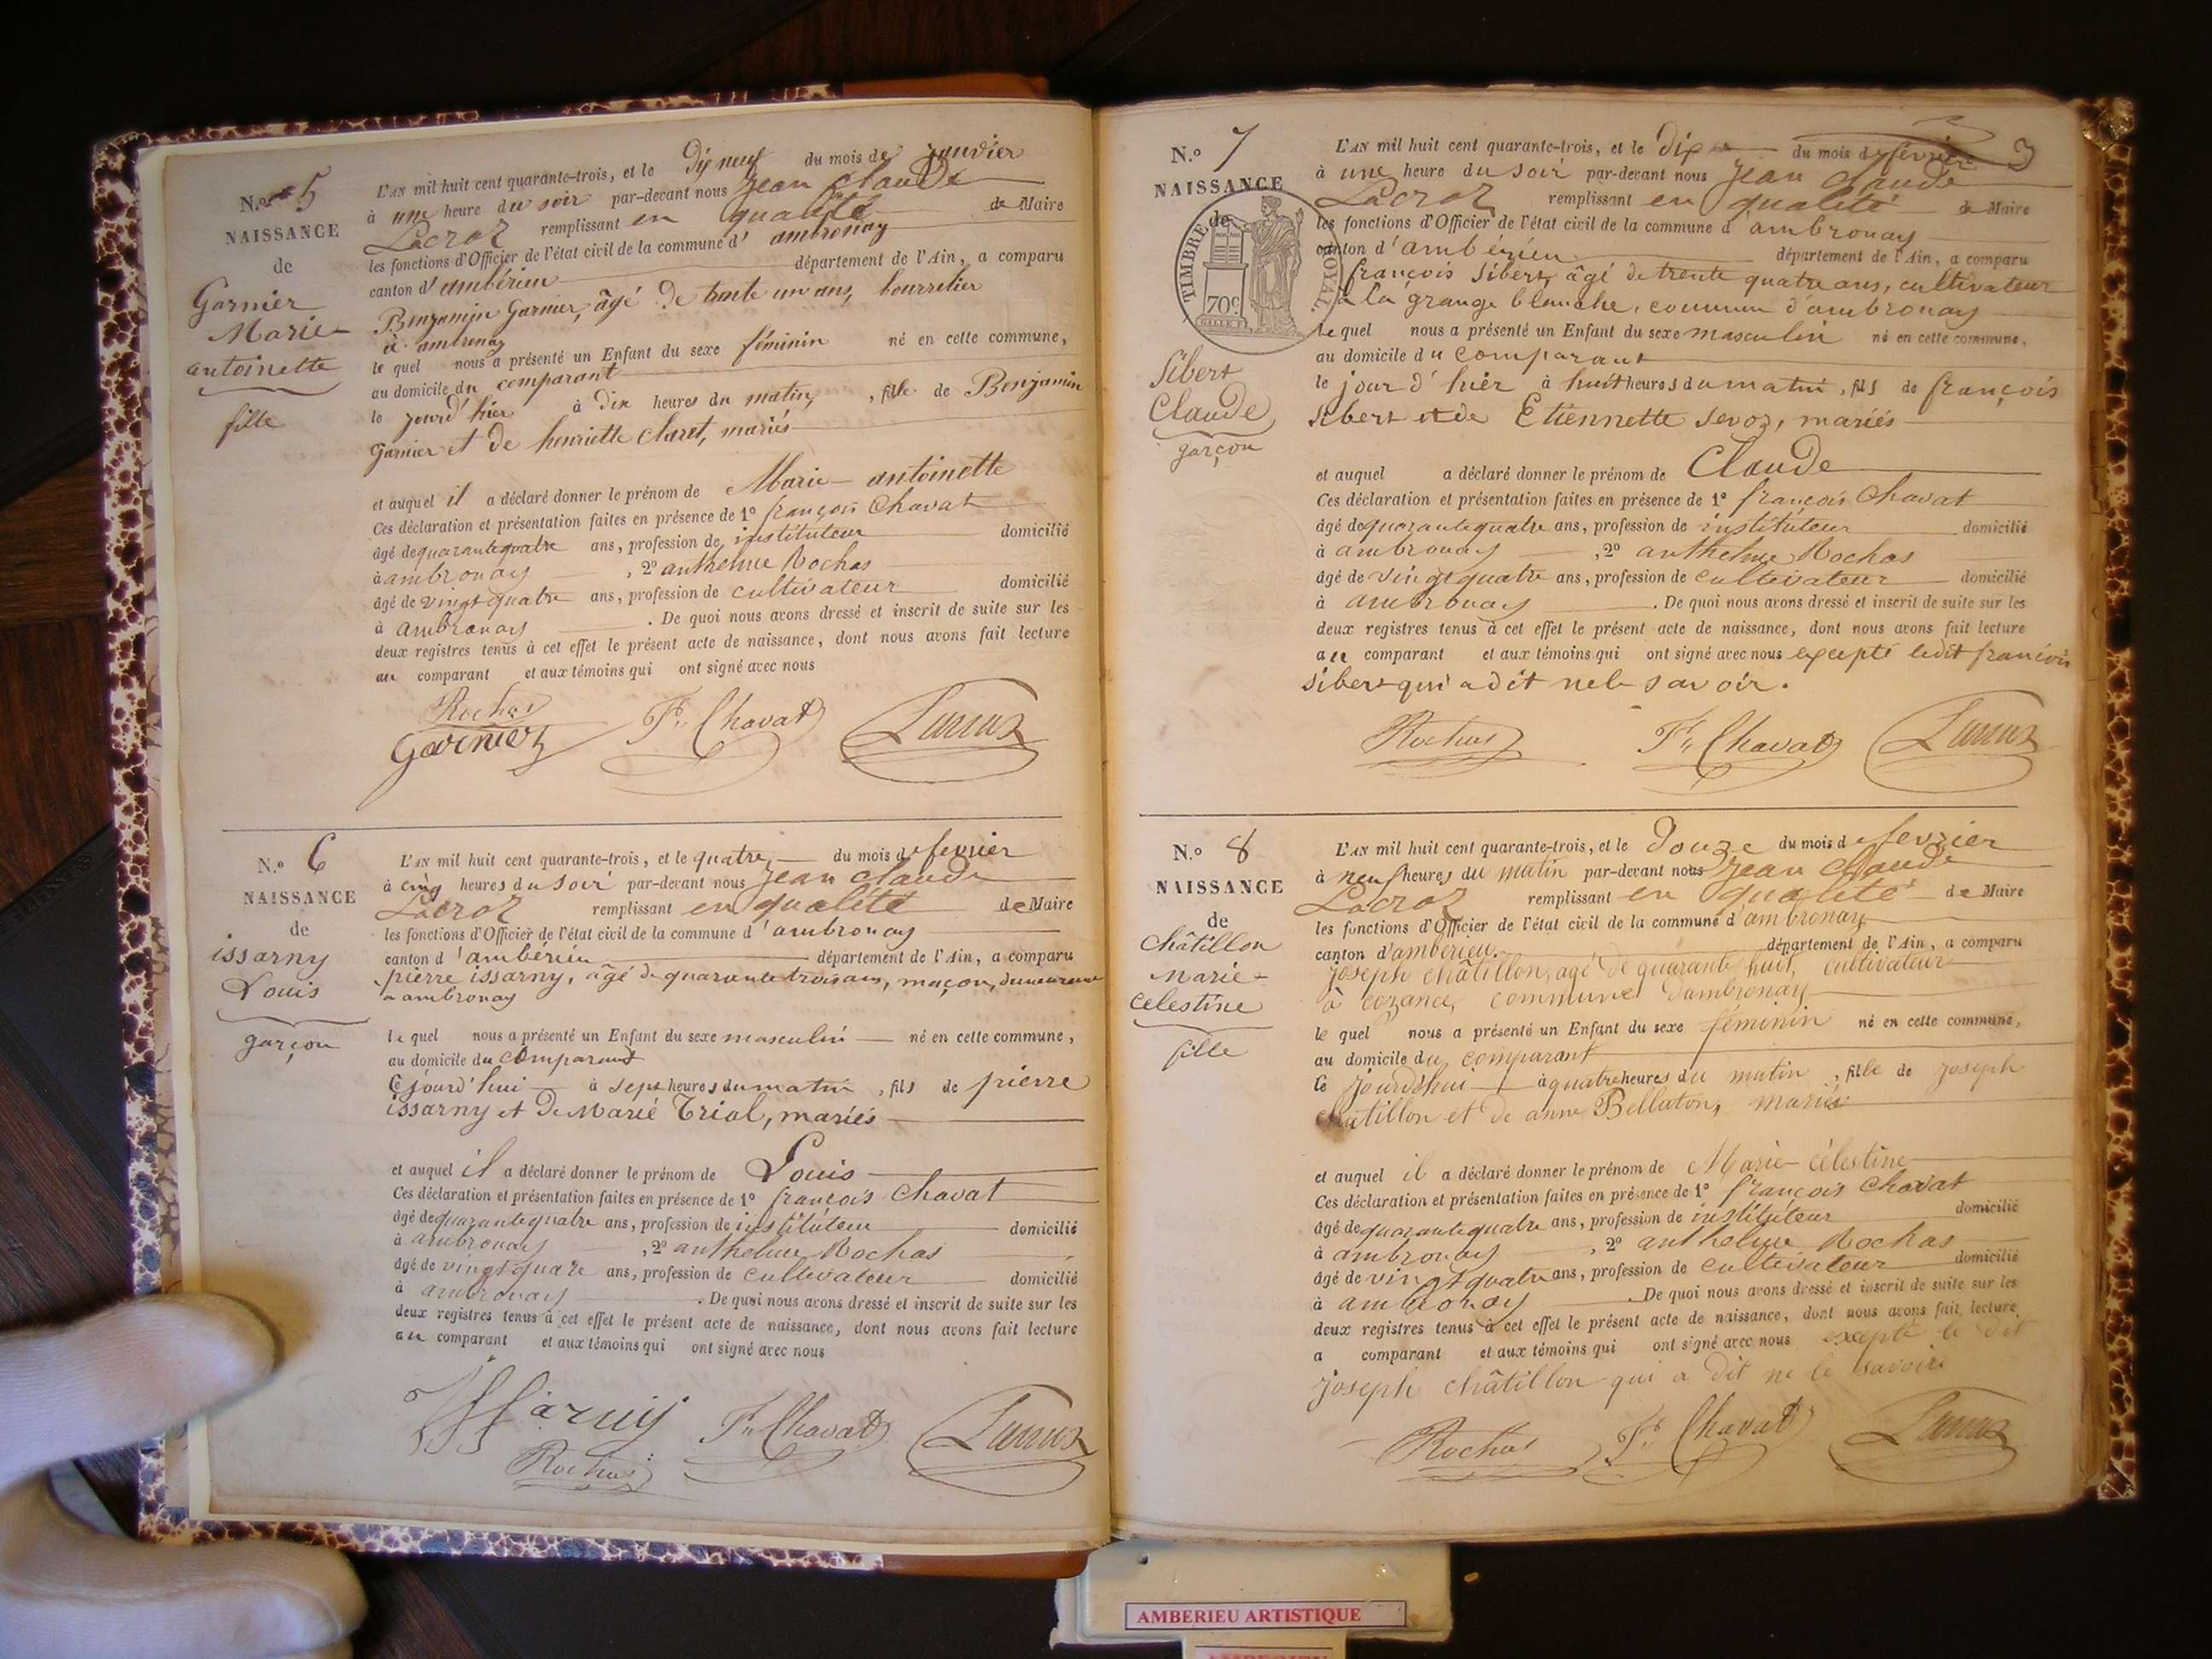 N.o 5
NAISSANCE
de
Garnier
Marie-
antoinette
fille
L'AN mil huit cent quarante-trois, et le Dix neuf du mois de janvier
à une heure du soir par-devant nous Jean Claude
Lacroz remplissant en qualité de Maire
les fonctions d'Officier de l'état civil de la commune d'ambronay
canton d'ambérieu département de l'Ain, a comparu
Benjamin Garnier, âgé de trente un ans, bourrelier
à ambronay
le quel nous a présenté un Enfant du sexe féminin né en cette commune,
au domicile du comparant
le jour d'hier à dix heures du matin, , fille de Benjamin
Garnier et de henriette Claret, mariés
et auquel il a déclaré donner le prénom de Marie-antoinette
Ces déclaration et présentation faites en présence de 1° françois Chavat
âgé de quarante quatre ans, profession de instituteur domicilié
à ambronay , 2° anthelme Rochas
âgé de vingt quatre ans, profession de cultivateur domicilié
à ambronay . De quoi nous avons dressé et inscrit de suite sur les
deux registres tenus à cet effet le présent acte de naissance, dont nous avons fait lecture
au comparant et aux témoins qui ont signé avec nous
Rochas
Garnier F. Chavat Lacroz
N.o 6
NAISSANCE
de
issarny
Louis
garçon
L'AN mil huit cent quarante-trois, et le quatre du mois de fevrier
à cinq heures du soir par-devant nous Jean Claude
Lacroz remplissant en qualité de Maire
les fonctions d'Officier de l'état civil de la commune d'ambronay
canton d'ambérieu département de l'Ain, a comparu
pierre issarny, âgé de quarante trois ans, maçon, demeurant
a ambronay
le quel nous a présenté un Enfant du sexe masculin né en cette commune,
au domicile du comparant
Cejourd'hui à sept heures du matin , fils de pierre
issarny et de Marie Trial, mariés
et auquel il a déclaré donner le prénom de Louis
Ces déclaration et présentation faites en présence de 1° françois Chavat
âgé de quarante quatre ans, profession de instituteur domicilié
à ambronay , 2° anthelme Rochas
âgé de vingt quare ans, profession de cultivateur domicilié
à ambronay . De quoi nous avons dressé et inscrit de suite sur les
deux registres tenus à cet effet le présent acte de naissance, dont nous avons fait lecture
au comparant et aux témoins qui ont signé avec nous
Issarny F. Chavat Lacroz
Rochas
3
N.o 7
NAISSANCE
de
TIMBRE ROYAL.
70c
Sibert
Claude
garçon
L'AN mil huit cent quarante-trois, et le dix du mois de février
à une heure du soir par-devant nous Jean Claude
Lacroz remplissant en qualité de Maire
les fonctions d'Officier de l'état civil de la commune d'ambronay
canton d'ambérieu département de l'Ain, a comparu
françois Sibert, âgé de trente quatre ans, cultivateur
à la grange blanche, commune d'ambronay
le quel nous a présenté un Enfant du sexe masculin né en cette commune,
au domicile du comparant
le jour d'hier à huit heures du matin , fils de françois
sibert et de Etiennette Sevoz, mariés
et auquel a déclaré donner le prénom de Claude
Ces déclaration et présentation faites en présence de 1° françois Chavat
âgé de quarante quatre ans, profession de instituteur domicilié
à ambronay , 2° anthelme Rochas
âgé de vingt quatre ans, profession de cultivateur domicilié
à ambronay . De quoi nous avons dressé et inscrit de suite sur les
deux registres tenus à cet effet le présent acte de naissance, dont nous avons fait lecture
au comparant et aux témoins qui ont signé avec nous excepté ledit françois
Sibert qui a dit ne le savoir.
Rochas F. Chavat Lacroz
N.o 8
NAISSANCE
de
Châtillon
Marie-
Celestine
fille
L'AN mil huit cent quarante-trois, et le Douze du mois de fevrier
à neuf heures du matin par-devant nous Jean Claude
Lacroz remplissant en qualité de Maire
les fonctions d'Officier de l'état civil de la commune d'ambronay
canton d'amberieu. département de l'Ain, a comparu
Joseph Châtillon, agé de quarante huit, cultivateur
à cozance, commune d'ambronay
le quel nous a présenté un Enfant du sexe féminin né en cette commune,
au domicile du comparant
Ce jourd'hui à quatre heures du matin , fille de Joseph
Chatillon et de anne Bellaton, mariés
et auquel il a déclaré donner le prénom de Marie-célestine
Ces déclaration et présentation faites en présence de 1° françois Chavat
âgé de quarante quatre ans, profession de instituteur domicilié
à ambronay , 2° anthelme Rochas
âgé de vingt quatre ans, profession de cultivateur domicilié
à ambronay . De quoi nous avons dressé et inscrit de suite sur les
deux registres tenus à cet effet le présent acte de naissance, dont nous avons fait lecture
a comparant et aux témoins qui ont signé avec nous excepté le dit
Joseph Châtillon qui a dit ne le savoir
Rochas F. Chavat Lacroz
AMBERIEU ARTISTIQUE